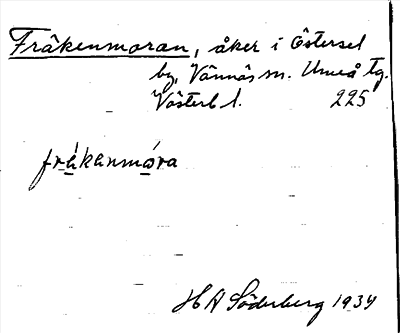 Fräkenmoran, åker i Östersel
by, Vännäs sn. Umeå Tg.
Västerb l. 225
frákenmóra
H A Söderberg 1934